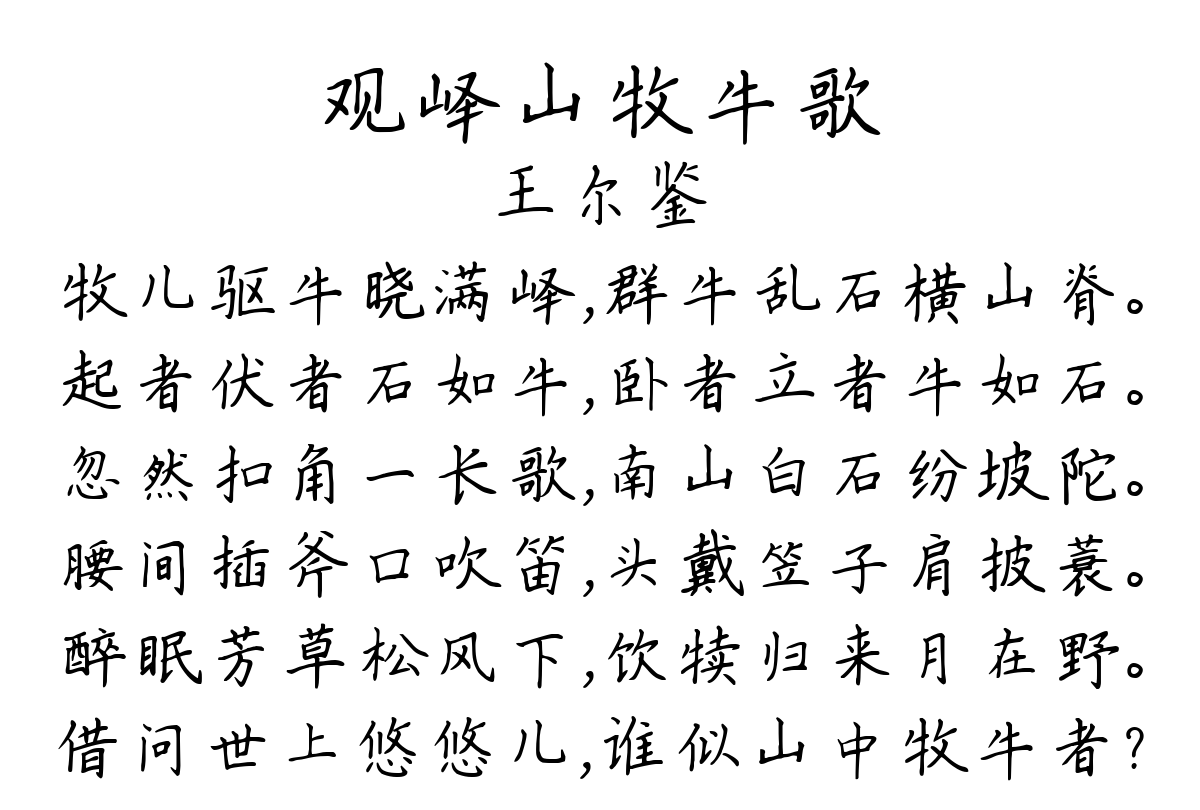 观峄山牧牛歌
王尔鉴
牧儿驱牛晓满峄,群牛乱石横山脊。
起者伏者石如牛,卧者立者牛如石。
忽然扣角一长歌,南山白石纷坡陀。
腰间插斧口吹笛,头戴笠子肩披蓑。
醉眠芳草松风下,饮犊归来月在野。
借问世上悠悠儿,谁似山中牧牛者?